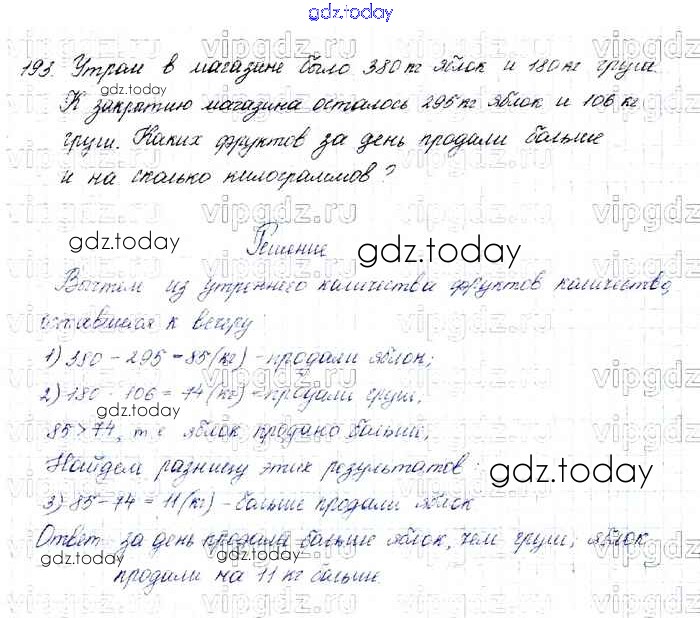 gdz.today
193. Утром в магазине было 380 кг яблок и 180 кг груш.
К закрытию магазина осталось 295 кг яблок и 106 кг
груш. Каких фруктов за день продали больше
и на сколько килограммов?
Решение
Вычтем из утреннего количества фруктов количество,
оставшееся к вечеру
1) 380 - 295 = 85 (кг) - продали яблок;
2) 180 - 106 = 74 (кг) - продали груш;
85 > 74, т.е. яблок продано больше,
Найдем разницу этих результатов:
3) 85 - 74 = 11 (кг) - больше продали яблок
Ответ за день продали больше яблок, чем груш; яблок
продали на 11 кг больше.